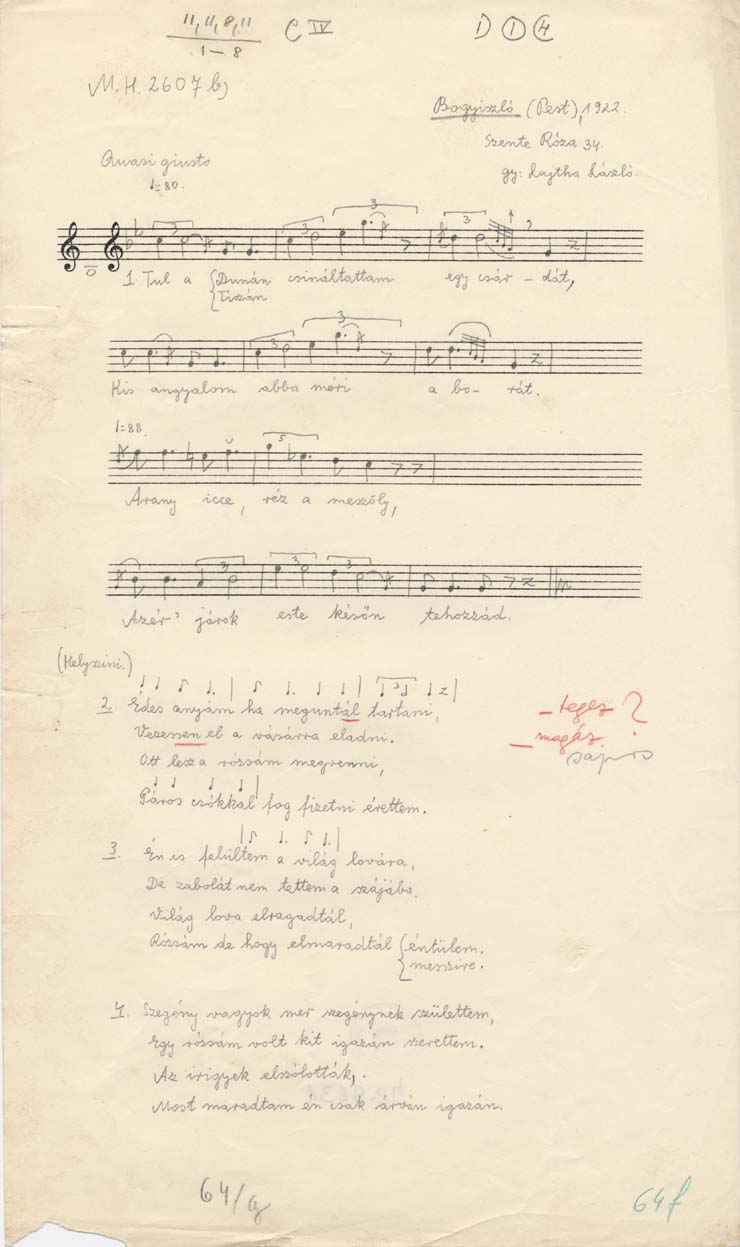 11, 11, 8, 11 C IV D 1 4
1-8
M.H. 2607 b)
Bogyiszló (Pest), 1922.
Szente Róza 34.
gy: Lajtha László.
Quasi giusto
=80.
1 Tul a {Dunán csináltattam egy csár-dát,
{Tiszán
Kis angyalom abba méri a bo-rát.
=88.
Arany icce, réz a meszöly,
Azér' járok este késön tehozzád.
(Helyszini.)
2. Édes anyám ha meguntál tartani,
Vezessen el a vásárra eladni.
Ott lesz a rózsám megvenni,
Páros csókkal fog fizetni érettem.
- tegez ?
- magáz
3. Én is felültem a világ lovára,
De zabolát nem tettem a szájába.
Világ lova elragadtál,
Rózsám de hogy elmaradtál {éntülem.
{messzire.
4. Szegény vagyok mer szegénynek születtem,
Egy rózsám volt kit igazán szerettem.
Az irigyek elszólották,
Most maradtam én csak árván igazán.
64/g
64f